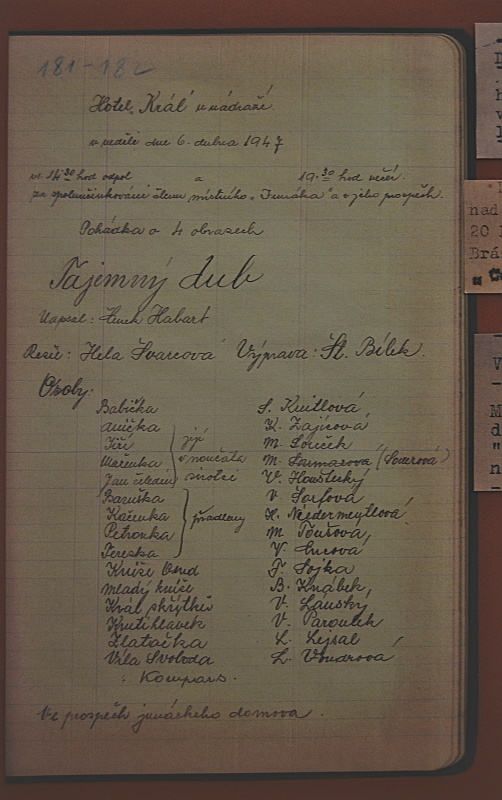 181-182
Hotel "Král" u nádraží.
v neděli dne 6. dubna 1947
ve 14.30 hod odpol a 19.30 hod večer.
za spoluúčinkování členů místního "Junáka" a v jeho prospěch.
Pohádka o 4 obrazech
Tajemný dub
Napsal: Habart
Režie: Hela Švarcová Výprava: St. Bílek.
Osoby:
Babička S. Knitlová
Anička K. Zajícová
Jiří její M. Souček
Mařenka vnoučata M. (Sourová)
Jan čeledín sirotci V. Houštecký
Baruška V. Sorfová
Kačenka přadleny H. Niedermeytlová
Petronka M. Toušová
Terezka V.
Kníže F. Sojka
Mladý kníže B. Knábek
Král skřítků V. Lánský
Krutihlávek V. Paroulek
Zlatačka L. Lejsal
Víla Svoboda L. Vondrová
Kompars.
Ve prospěch junáckého domova.
nad
20
Brá
V
M
d
n